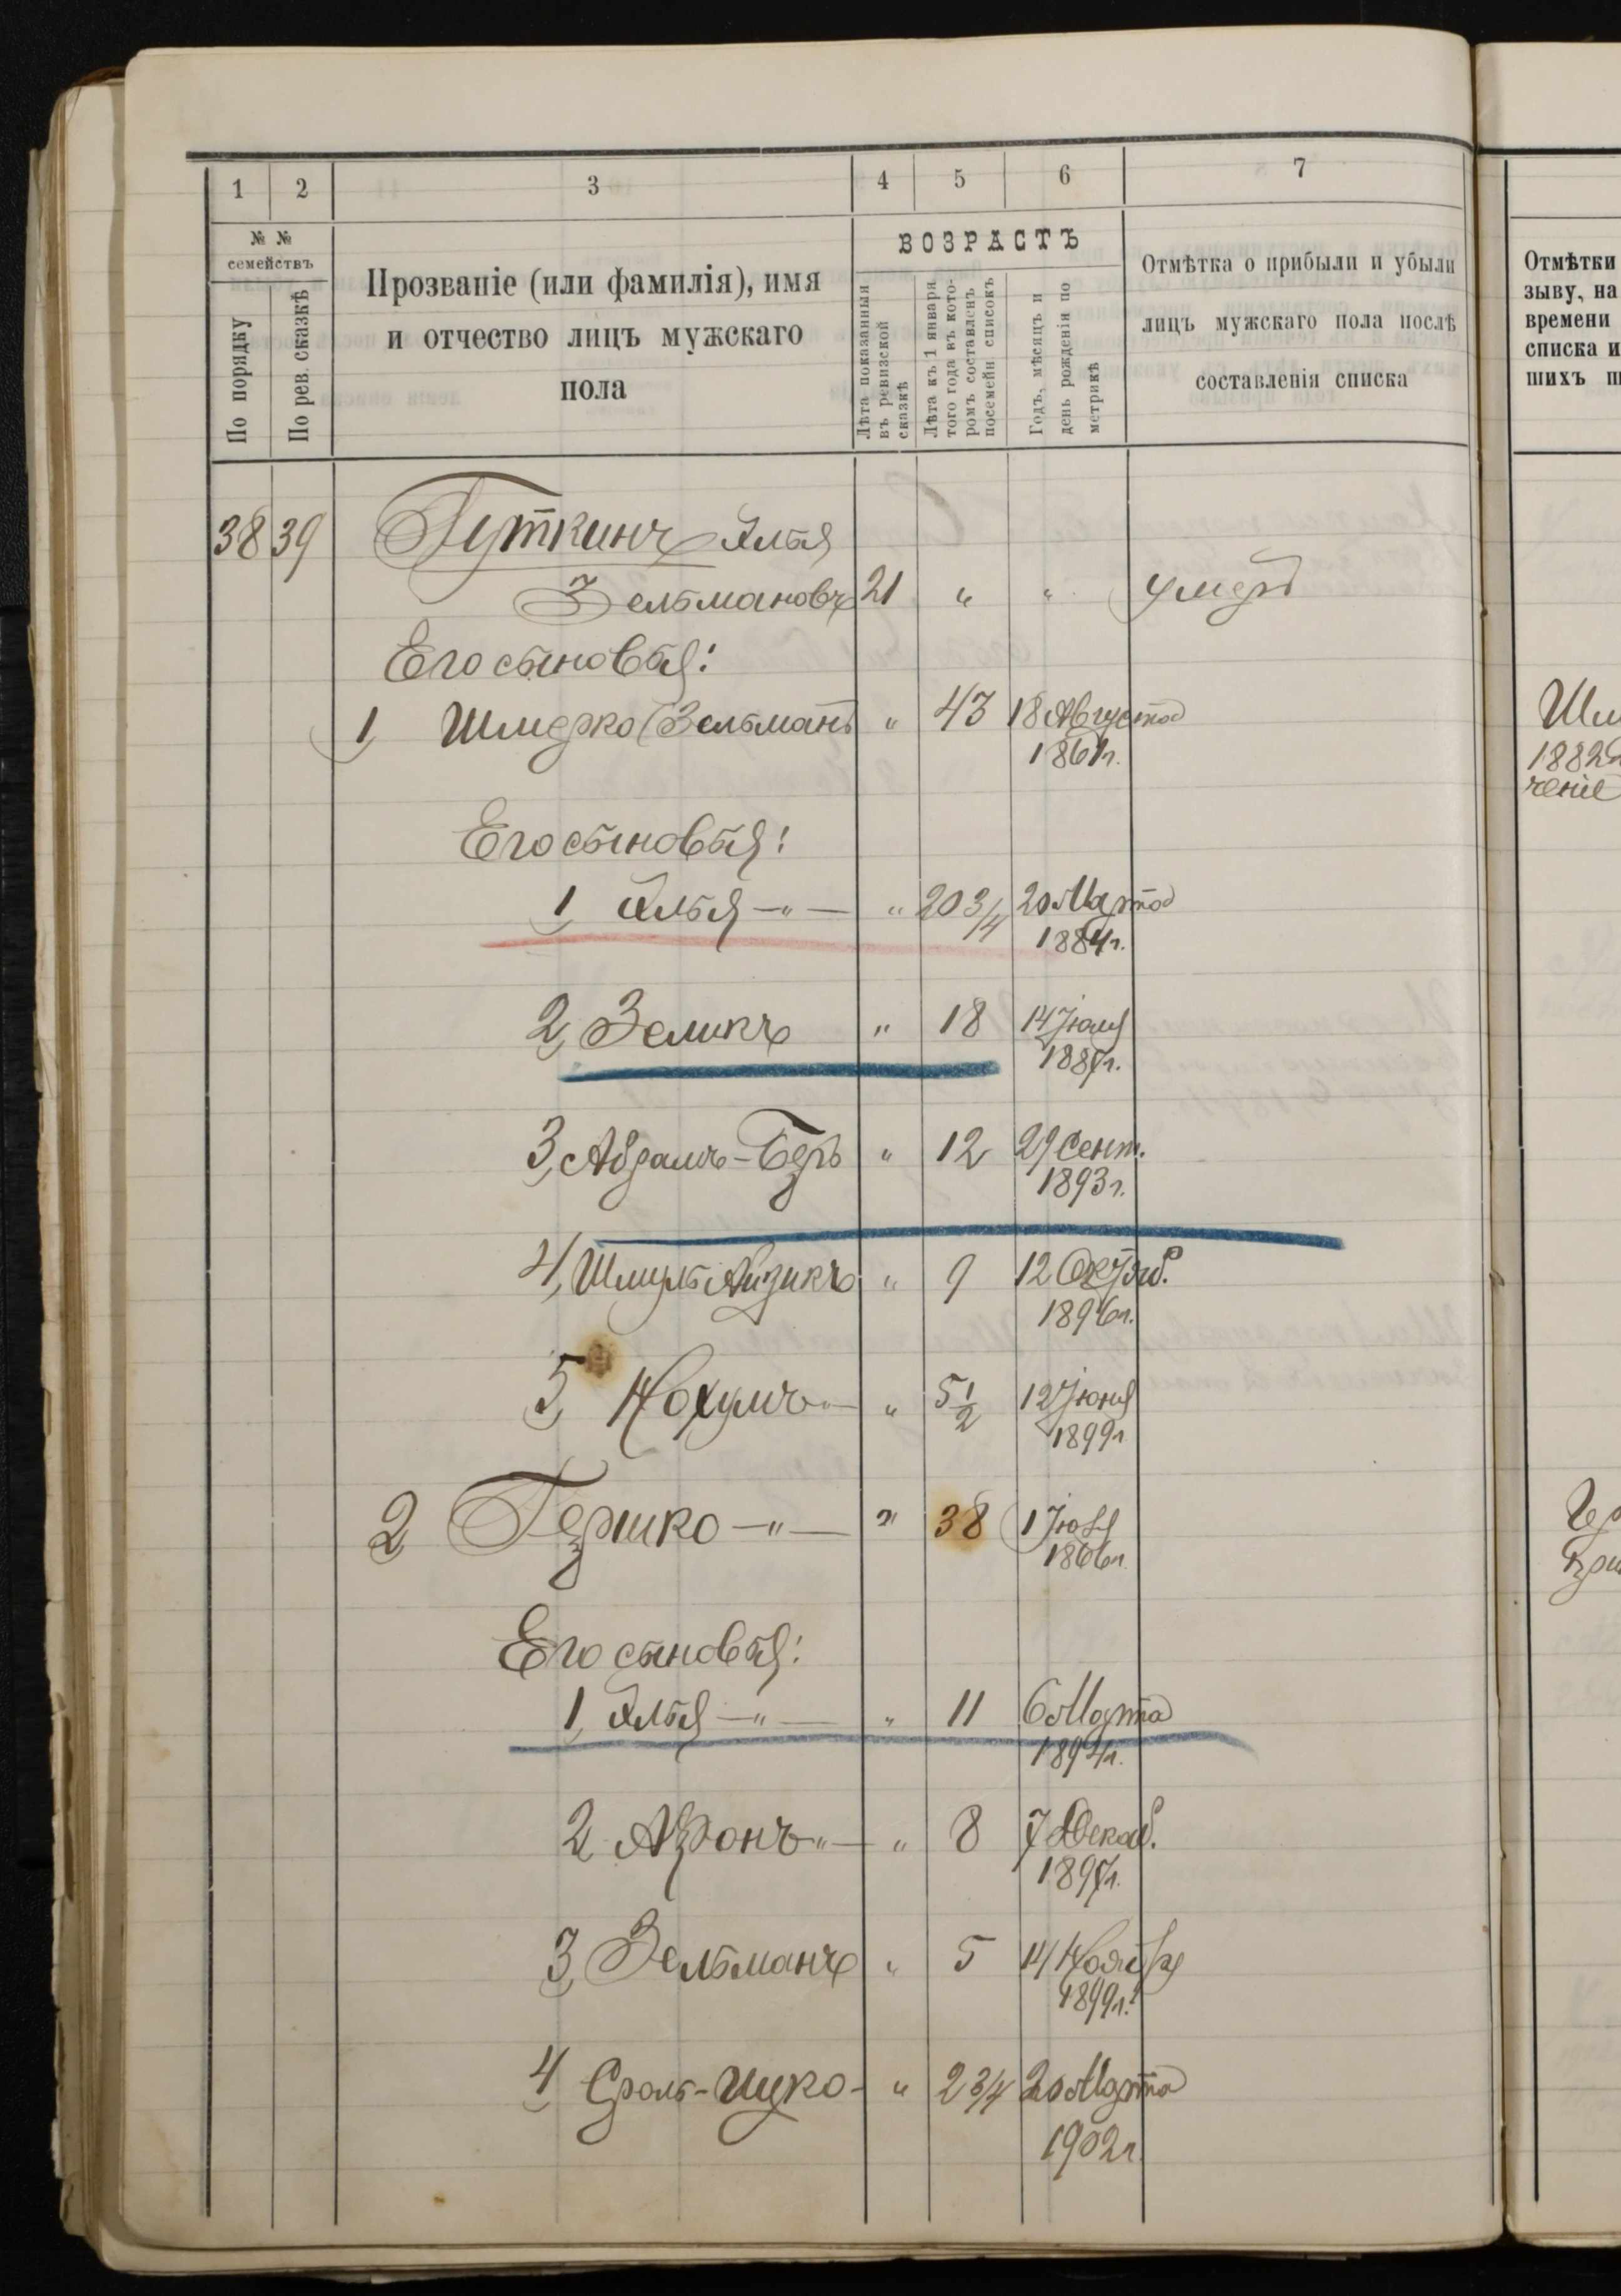 1 2 3 4 5 6 7
№ №
семействъ
По порядку
По рев. сказкѣ
Прозваніе (или фамилія), имя
и отчество лицъ мужскаго
пола
ВОЗРАСТЪ
Лѣта показанныя
въ ревизской
сказкѣ
Лѣта къ 1 января
того года въ кото-
ромъ составленъ
посемейн списокъ
Годъ, мѣсяцъ и
день рожденія по
метрикѣ
Отмѣтка о прибыли и убыли
лицъ мужскаго пола послѣ
составленія списка
Отмѣтки
зыву, на
времени
списка и
шихъ
38 39 Гуткинъ Илья
Зельмановъ 21 " " умеръ
Его сыновья:
1, Шмерко (Зельманъ " 43 18 Августа
1861г.
1882
ченіе
Его сыновья:
1, Илья —"— " 20 3/4 20 Марта
1884г.
2, Зеликъ " 18 14 Іюля
1887г.
3, Абрамъ-Беръ " 12 29 Сент.
1893г.
4, Шмуль Айзикъ " 9 12 Октяб.
1896г.
5, Нохумъ "— " 5 1/2 12 Іюня
1899г
2 Гершко —"— " 38 1
1866г
Его сыновья:
1, Илья —"— " 11 6 Марта
1894г.
2, Аронъ "— " 8 7 Декаб.
1897г.
3, Зельманъ " 5 14 Ноября
1899г.
4, Сроль-Ицко - " 2 3/4 20 Марта
1902г